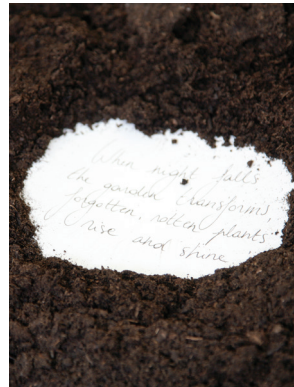 When night falls
the garden transforms,
forgotten, rotten plants
rise and shine